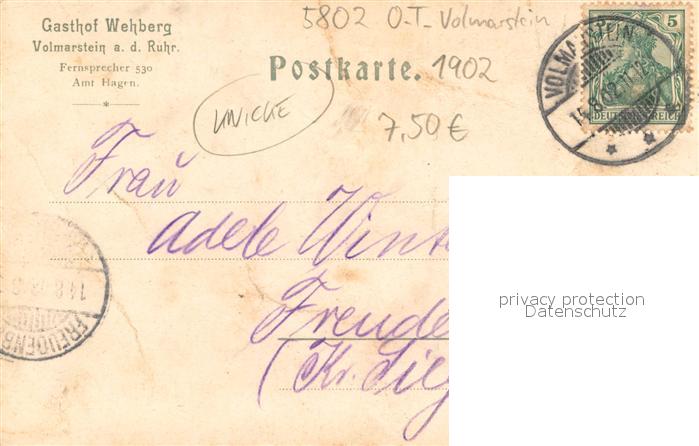 5802 O-T- Volmarstein
Gasthof Wehberg
Volmarstein a. d. Ruhr.
Fernsprecher 530
Amt Hagen.
Postkarte. 1902
UNICKE
7,50 €
5
DEUTSCHES REICH
VOLMARSTEIN
14.8.02.11-12
Frau
Adele Wint
Freude
(Kr. Sieg
14.8.
FREUDENB
privacy protection
Datenschutz